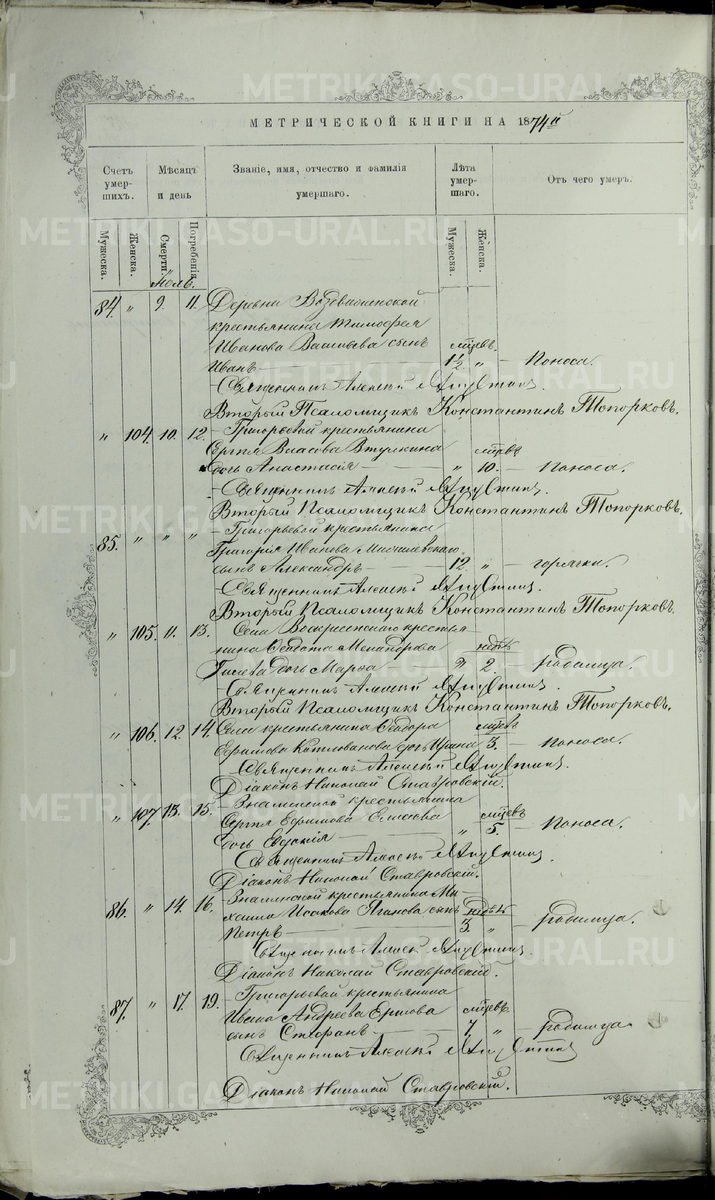 МЕТРИЧЕСКОЙ КНИГИ НА 1874й
Счетъ умер-шихъ. Мѣсяцъ и день Званіе, имя, отчество и фамилія умершаго. Лѣта умер-шаго. Отъ чего умеръ.
Мужеска. Женска. Смерти. Погребенія. Мужеска. Женска.
Іюль.
84. " 9. 11. Деревни Воздвиженской
крестьянина Тимофея
Иванова сынъ мѣсцв.
Иванъ 1½ " Поноса.
Священникъ Алексѣй
Второй Псаломщикъ Константинъ Топорковъ.
" 104. 10. 12. Григорьевой крестьянина
Сергія Власова Втулкина мѣсцв
дочь Анастасія " 10. Поноса.
Священникъ Алексѣй
Второй Псаломщикъ Константинъ Топорковъ.
85. " " " Григорьевой крестьянина
Григорія Иванова
сынъ Александръ 12 " горячки.
Священникъ Алексѣй
Второй Псаломщикъ Константинъ Топорковъ.
" 105. 11. 13. Села Воскресенскаго крестья-
нина Ѳеодота Менандрова недѣл
дочь Марѳа " 2 родимца.
Священникъ Алексѣй
Второй Псаломщикъ Константинъ Топорковъ.
" 106. 12. 14. Села крестьянина Ѳеодора мѣсцв
Ефимова Котлованова дочь Ирина 3. Поноса.
Священникъ Алексѣй
Діаконъ Николай Ставровскій.
" 107. 13. 15. Знаменской крестьянина
Сергія Ефимова Елисѣева мѣсцв
дочь Евдокія " 5. Поноса.
Священникъ Алексѣй
Діаконъ Николай Ставровскій.
86. " 14. 16. Знаменской крестьянина Ми-
хаила Исакова Яганова сынъ недѣл
Петръ 3. " родимца.
Священникъ Алексѣй
Діаконъ Николай Ставровскій.
87. " 17. 19. Григорьевой крестьянина
Ивана Андреева Ершова мѣсцв.
сынъ Стефанъ 7. " родимца
Священникъ Алексѣй
Діаконъ Николай Ставровскій.
METRIKI.GASO-URAL.RU